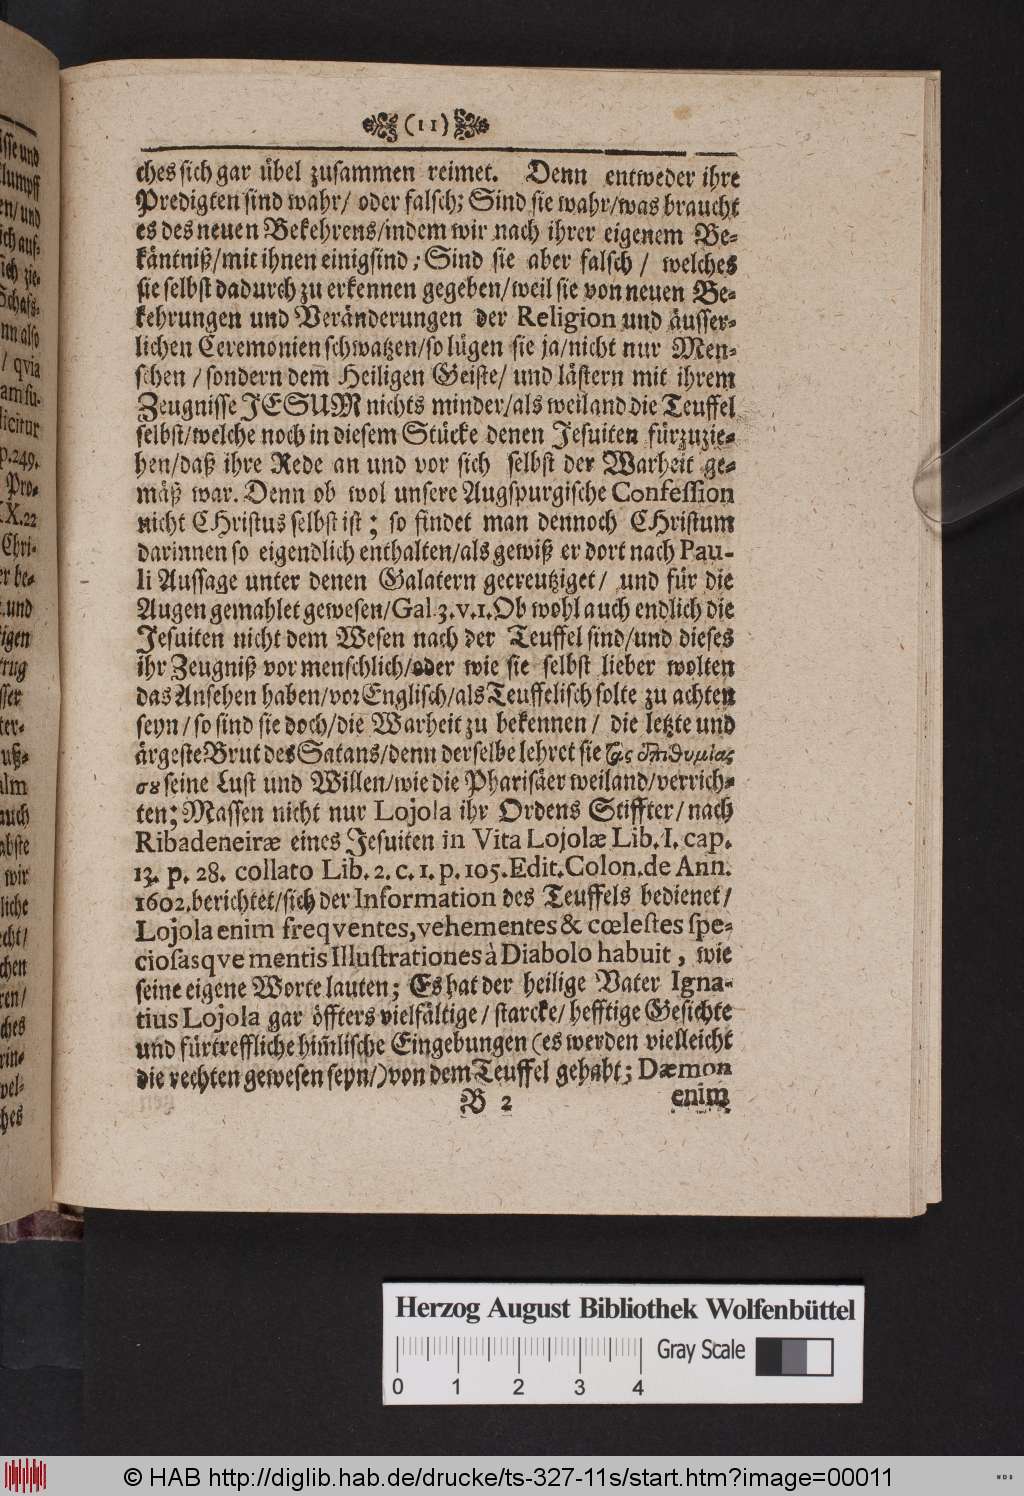 (11)
ches sich gar übel zusammen reimet. Denn entweder ihre
Predigten sind wahr/ oder falsch; Sind sie wahr/was braucht
es des neuen Bekehrens/indem wir nach ihrer eigenem Be-
käntniß/mit ihnen einig sind; Sind sie aber falsch / welches
sie selbst dadurch zu erkennen gegeben/weil sie von neuen Be-
kehrungen und Veränderungen der Religion und äusser-
lichen Ceremonien schwatzen/so lügen sie ja/nicht nur Men-
schen / sondern dem Heiligen Geiste/ und lästern mit ihrem
Zeugnisse JESUM nichts minder/als weiland die Teuffel
selbst/welche noch in diesem Stücke denen Jesuiten fürzuzie-
hen/daß ihre Rede an und vor sich selbst der Warheit ge-
mäß war. Denn ob wol unsere Augspurgische Confession
nicht CHristus selbst ist; so findet man dennoch CHristum
darinnen so eigendlich enthalten/als gewiß er dort nach Pau-
li Aussage unter denen Galatern gecreutziget/ und für die
Augen gemahlet gewesen/Gal.3.v.1.Ob wohl auch endlich die
Jesuiten nicht dem Wesen nach der Teuffel sind/und dieses
ihr Zeugniß vor menschlich/oder wie sie selbst lieber wolten
das Ansehen haben/vor Englisch/als Teuffelisch solte zu achten
seyn/ so sind sie doch/die Warheit zu bekennen/ die letzte und
ärgeste Brut des Satans/denn derselbe lehret sie τὰς ἐπιθυμίας
σȣ seine Lust und Willen/wie die Pharisäer weiland/verrich-
ten; Massen nicht nur Lojola ihr Ordens Stiffter/ nach
Ribadeneiræ eines Jesuiten in Vita Lojolæ Lib. I. cap.
13. p. 28. collato Lib. 2. c. 1. p. 105. Edit. Colon. de Ann.
1602. berichtet/sich der Information des Teuffels bedienet/
Lojola enim freqventes, vehementes & cœlestes spe-
ciosasqve mentis Illustrationes à Diabolo habuit, wie
seine eigene Worte lauten; Es hat der heilige Vater Igna-
tius Lojola gar öffters vielfältige/ starcke/ hefftige Gesichte
und fürtreffliche him̃lische Eingebungen (es werden vielleicht
die rechten gewesen seyn/) von dem Teuffel gehabt; Dæmon
B 2 enim
Herzog August Bibliothek Wolfenbüttel
Gray Scale
0 1 2 3 4
© HAB http://diglib.hab.de/drucke/ts-327-11s/start.htm?image=00011